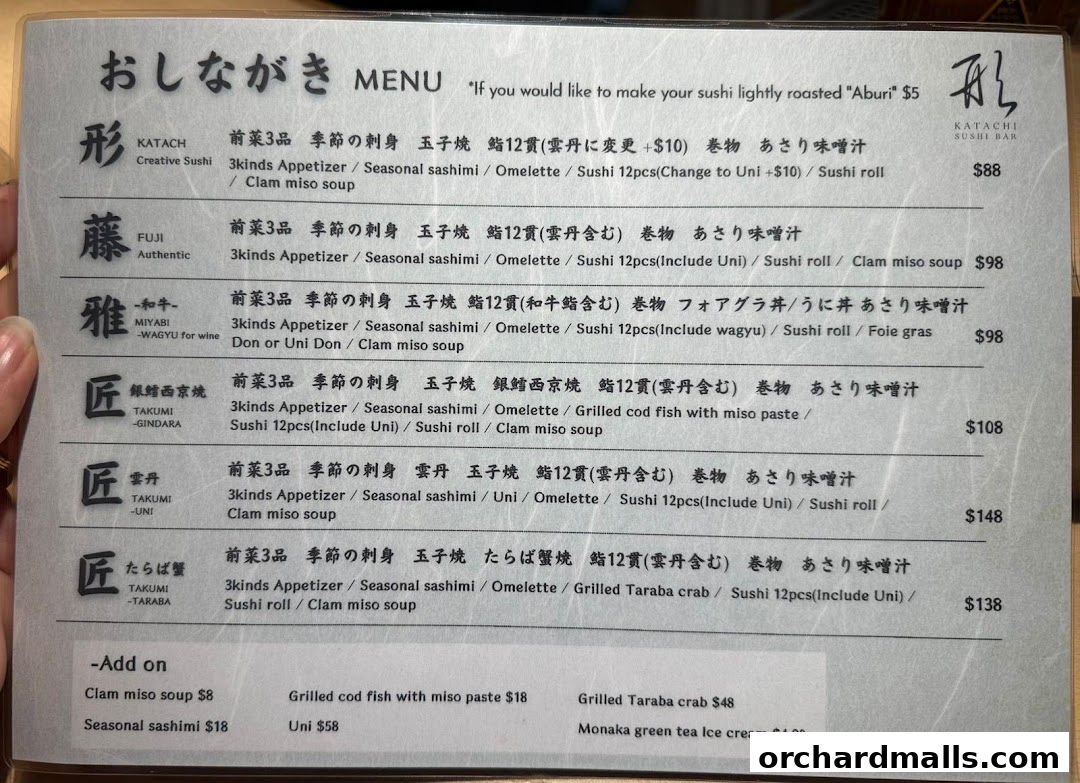 おしながき MENU *If you would like to make your sushi lightly roasted "Aburi" $5
形
KATACHI
SUSHI BAR
形 KATACH
Creative Sushi
前菜3品 季節の刺身 玉子焼 鮨12貫(雲丹に変更 +$10) 巻物 あさり味噌汁
3kinds Appetizer / Seasonal sashimi / Omelette / Sushi 12pcs(Change to Uni +$10) / Sushi roll
/ Clam miso soup
$88
藤 FUJI
Authentic
前菜3品 季節の刺身 玉子焼 鮨12貫(雲丹含む) 巻物 あさり味噌汁
3kinds Appetizer / Seasonal sashimi / Omelette / Sushi 12pcs(Include Uni) / Sushi roll / Clam miso soup $98
雅 -和牛-
MIYABI
-WAGYU for wine
前菜3品 季節の刺身 玉子焼 鮨12貫(和牛鮨含む) 巻物 フォアグラ丼/うに丼 あさり味噌汁
3kinds Appetizer / Seasonal sashimi / Omelette / Sushi 12pcs(Include wagyu) / Sushi roll / Foie gras
Don or Uni Don / Clam miso soup
$98
匠 銀鱈西京焼
TAKUMI
-GINDARA
前菜3品 季節の刺身 玉子焼 銀鱈西京焼 鮨12貫(雲丹含む) 巻物 あさり味噌汁
3kinds Appetizer / Seasonal sashimi / Omelette / Grilled cod fish with miso paste /
Sushi 12pcs(Include Uni) / Sushi roll / Clam miso soup
$108
匠 雲丹
TAKUMI
-UNI
前菜3品 季節の刺身 雲丹 玉子焼 鮨12貫(雲丹含む) 巻物 あさり味噌汁
3kinds Appetizer / Seasonal sashimi / Uni / Omelette / Sushi 12pcs(Include Uni) / Sushi roll /
Clam miso soup
$148
匠 たらば蟹
TAKUMI
-TARABA
前菜3品 季節の刺身 玉子焼 たらば蟹焼 鮨12貫(雲丹含む) 巻物 あさり味噌汁
3kinds Appetizer / Seasonal sashimi / Omelette / Grilled Taraba crab / Sushi 12pcs(Include Uni) /
Sushi roll / Clam miso soup
$138
-Add on
Clam miso soup $8 Grilled cod fish with miso paste $18 Grilled Taraba crab $48
Seasonal sashimi $18 Uni $58 Monaka green tea Ice
orchardmalls.com